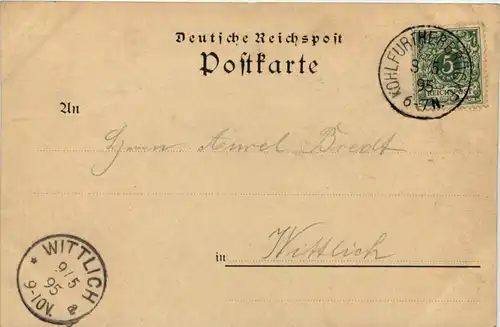 Deutsche Reichspost
Postkarte
KOHLFURTHERBRÜCKE
95
6-7N.
5
REICHSPOST
An
Herrn Aurel Bredt
in Wittlich
* WITTLICH a
9/5
95
9-10V.